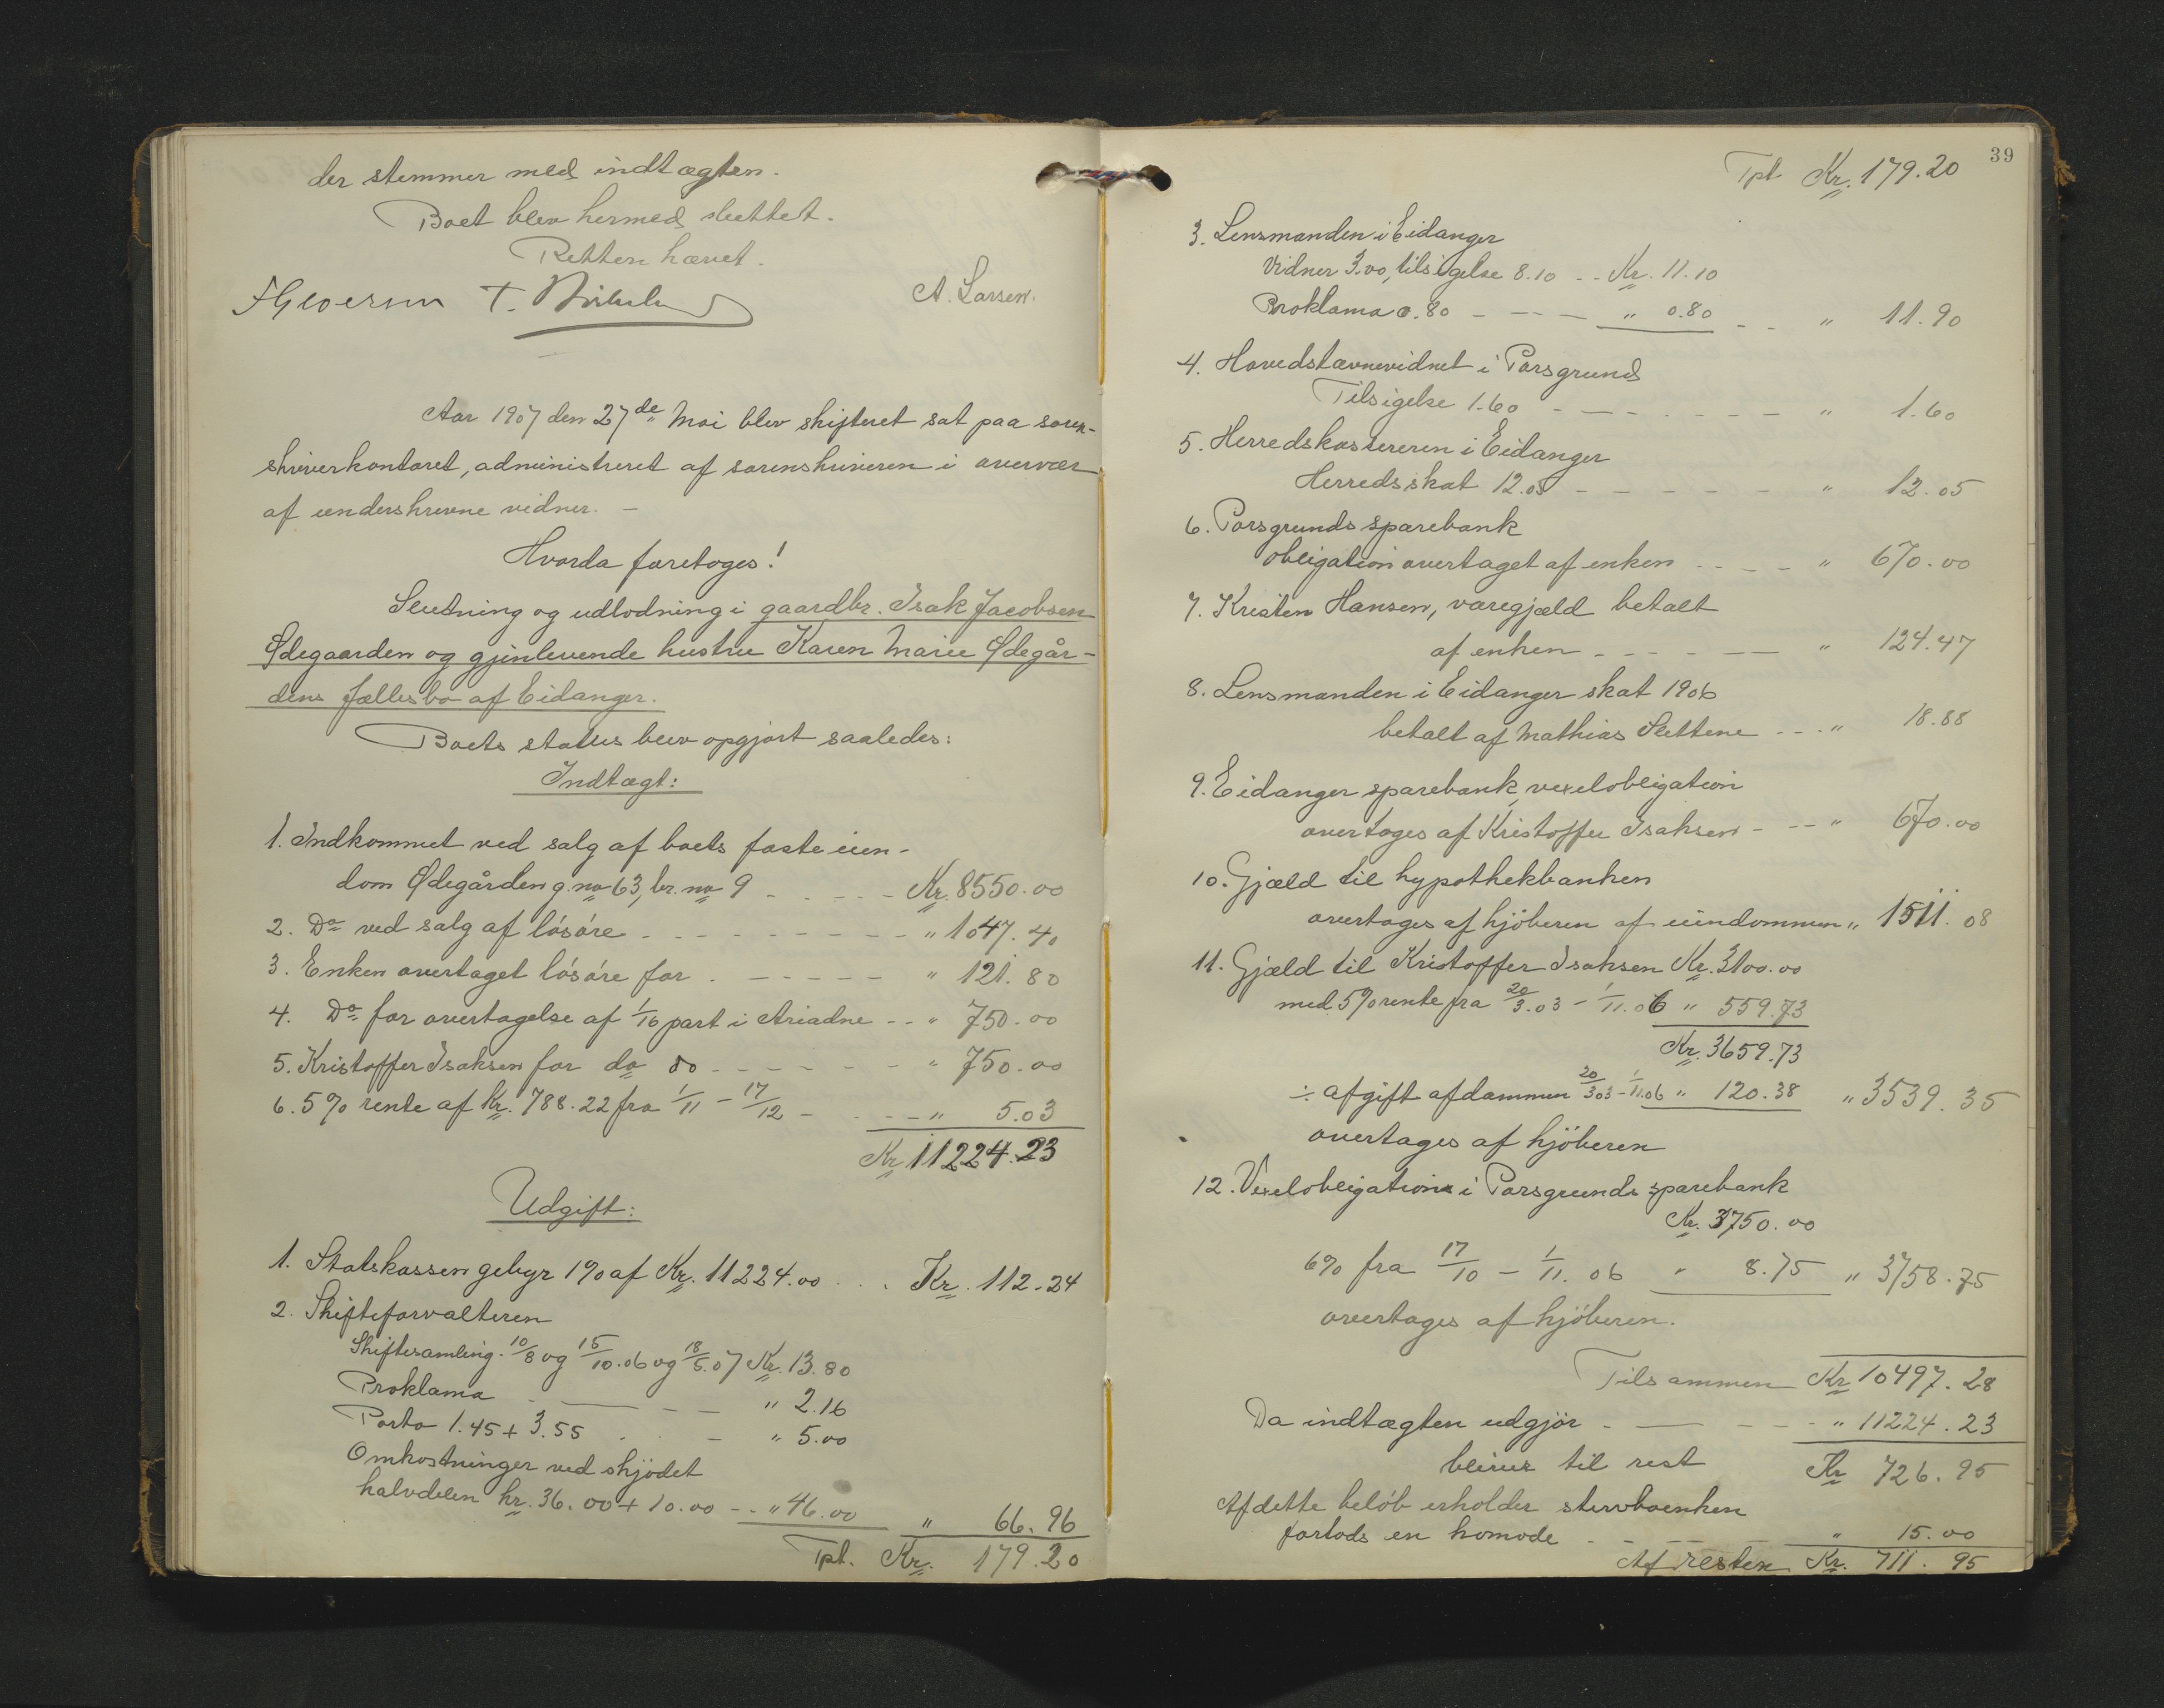 der stemmer med indtægten.
Boet blev hermed sluttet.
Retten hævet.
A. Larsen.
Aar 1907 den 27de Mai blev skifteret sat paa soren-
skriverkontoret, administreret af sorenskriveren i overvær
af underskrevne vidner. –
Hvorda foretoges!
Slutning og udlodning i gaardbr. Isak Jacobsen
Ødegaarden og gjenlevende hustru Karen Marie Ødegår-
dens fællesbo af Eidanger.
Boets status blev opgjørt saaledes:
Indtægt:
1. Indkommet ved salg af boets faste eien-
dom Ødegården g.no 63, br. no 9 - - - - - Kr. 8550.00
2. Do ved salg af løsøre - - - - - - - - - " 1047.40
3. Enken overtaget løsøre for - - - - - - " 121.80
4. Do for overtagelse af 1/16 part i Ariadne - - " 750.00
5. Kristoffer Isaksen for do do - - - - - - " 750.00
6. 5% rente af Kr. 788.22 fra 1/11 - 17/12 - - - - " 5.03
Kr 11224.23
Udgift:
1. Statskassen gebyr 1% af Kr. 11224.00 . . . Kr. 112.24
2. Skifteforvalteren
Skiftesamling. 10/8 og 15/10.06 og 18/5.07 Kr. 13.80
Proklama - - - - " 2.16
Porto 1.45 + 3.55 . . - " 5.00
Omkostninger ved skjødet
halvdelen kr. 36.00 + 10.00 - - " 46.00 " 66.96
Tpt. Kr. 179.20
39
Tpt Kr. 179.20
3. Lensmanden i Eidanger
Vidner 3.00, tilsigelse 8.10 - - Kr. 11.10
Proklama 0.80 - - - - " 0.80 - - " 11.90
4. Hovedstævnevidnet i Porsgrund
Tilsigelse 1.60 - - - - - - - " 1.60
5. Herredskasereren i Eidanger
Herredsskat 12.05 - - - - - " 12.05
6. Porsgrunds sparebank
obligation overtaget af enken - - - - " 670.00
7. Kristen Hansen, varegjæld betalt
af enken - - - - - - " 124.47
8. Lensmanden i Eidanger skat 1906
betalt af Mathias Slettene - - - " 18.88
9. Eidanger sparebank, vexelobligation
overtages af Kristoffer Isaksen - - - " 670.00
10. Gjæld til hypothekbanken
overtages af kjøberen af eiendommen " 1511.08
11. Gjæld til Kristoffer Isaksen Kr. 3100.00
med 5% rente fra 20/3.03 - 1/11.06 " 559.73
Kr. 3659.73
÷ afgift af dammen 20/3 03 - 1/11.06 " 120.38 " 3539.35
overtages af kjøberen
12. Vexelobligation i Porsgrunds sparebank
Kr. 3750.00
6% fra 17/10 - 1/11. 06 " 8.75 " 3758.75
overtages af kjøberen.
Tilsammen Kr 10497.28
Da indtægten udgjør - - - - - " 11224.23
bliver til rest Kr 726.95
Af dette beløb erholder stervboenken
forlods en komode - - - - - " 15.00
Af resten Kr. 711.95